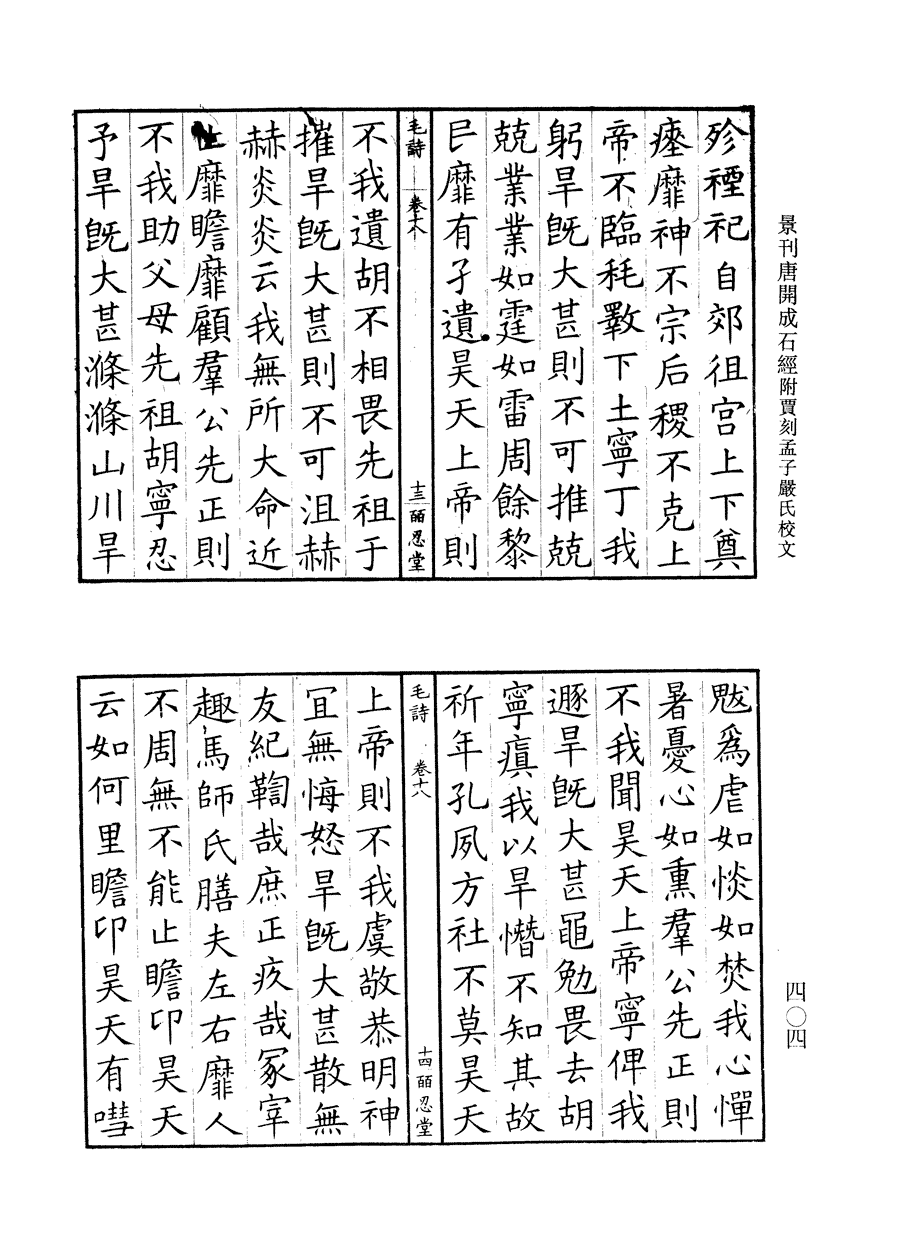 景刊唐開成石經附賈刻孟子嚴氏校文
殄禋祀自郊徂宮上下奠
瘞靡神不宗后稷不克上
帝不臨耗斁下土寧丁我
躬旱旣大甚則不可推兢
兢業業如霆如雷周餘黎
民靡有孑遺昊天上帝則
毛詩 卷十八 十三 皕忍堂
不我遺胡不相畏先祖于
摧旱旣大甚則不可沮赫
赫炎炎云我無所大命近
止靡瞻靡顧羣公先正則
不我助父母先祖胡寧忍
予旱旣大甚滌滌山川旱
魃爲虐如惔如焚我心憚
暑憂心如熏羣公先正則
不我聞昊天上帝寧俾我
遯旱旣大甚黽勉畏去胡
寧瘨我以旱憯不知其故
祈年孔夙方社不莫昊天
毛詩 卷十八 十四 皕忍堂
上帝則不我虞敬恭明神
宜無悔怒旱旣大甚散無
友紀鞫哉庶正疚哉冢宰
趣馬師氏膳夫左右靡人
不周無不能止瞻卬昊天
云如何里瞻卬昊天有嘒
四〇四